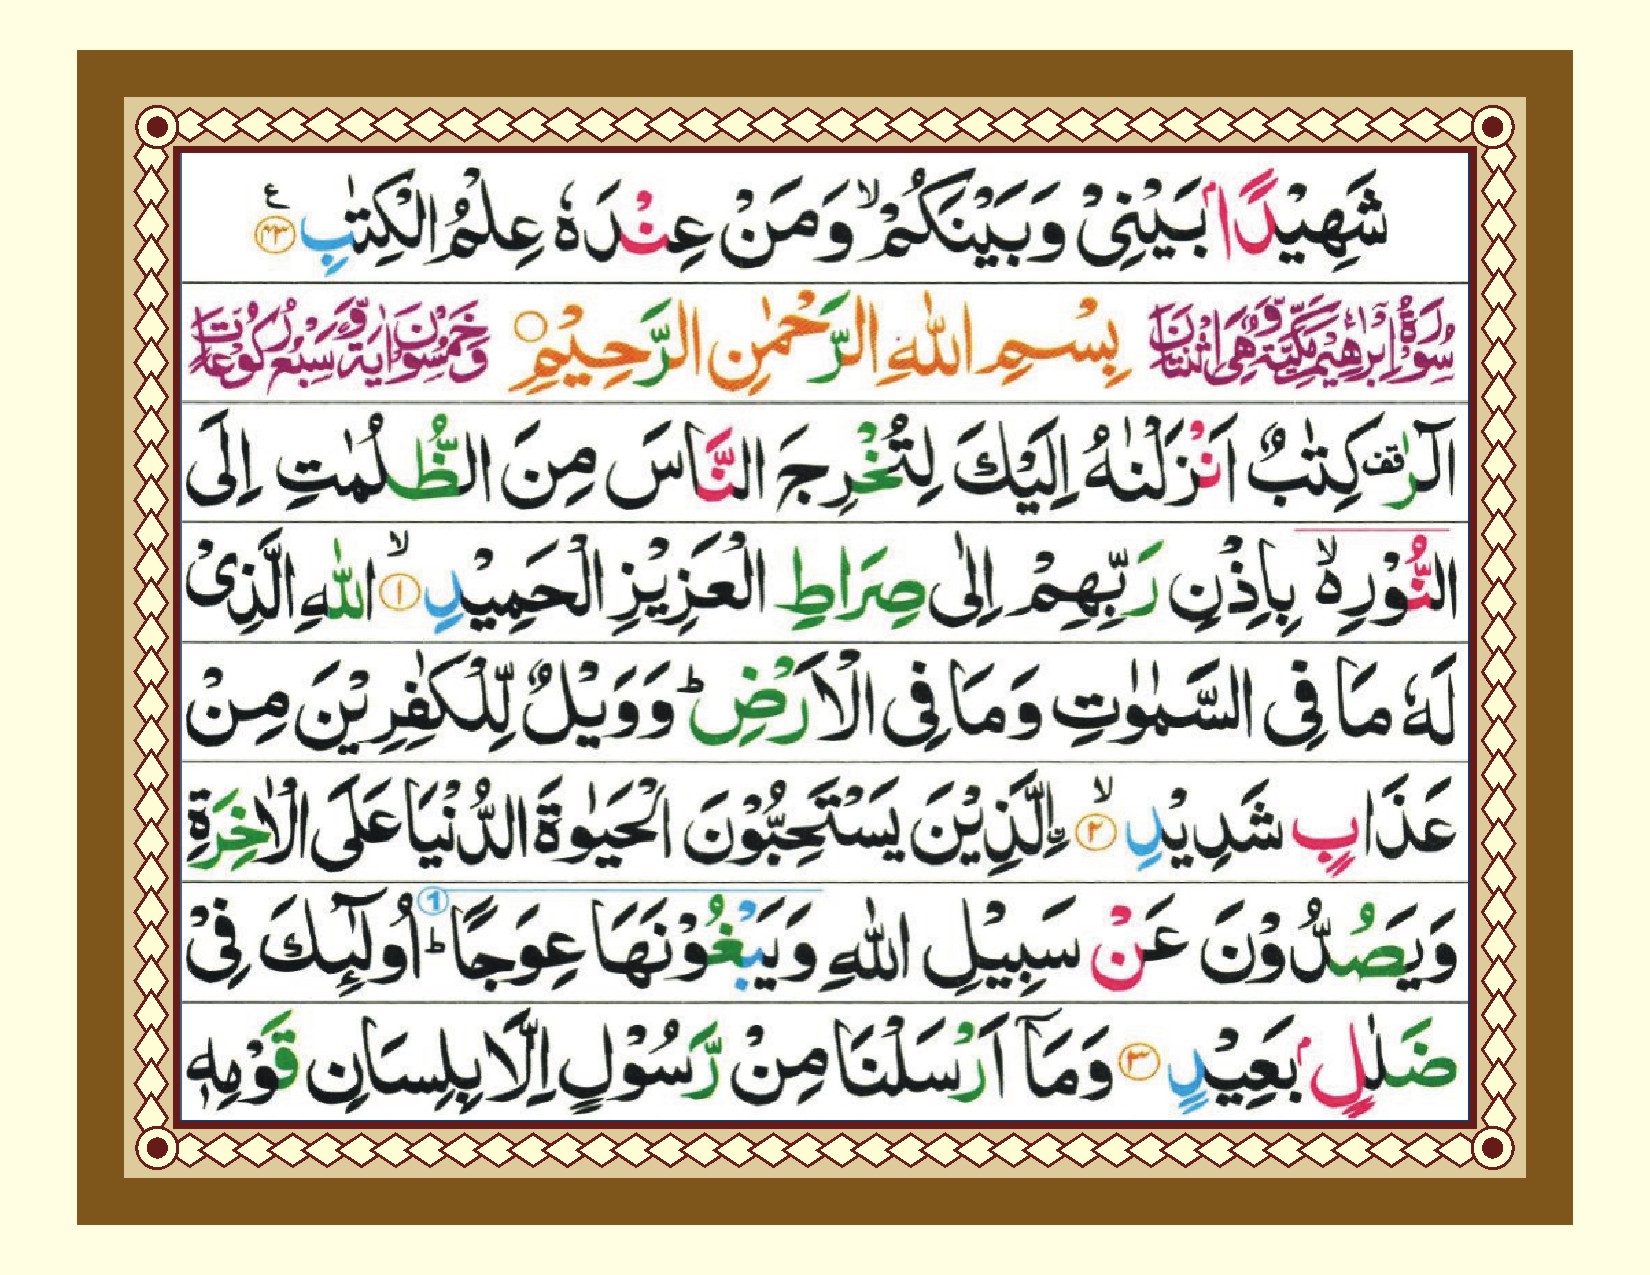 شَهِيْدًاۢ بَيْنِيْ وَبَيْنَكُمْ ۙ وَمَنْ عِنْدَهٗ عِلْمُ الْكِتٰبِ ﴿۴۳﴾ ع
سُوْرَةُ اِبْرٰهِيْمَ مَكِّيَّةٌ وَّهِيَ اثْنَتَانِ بِسْمِ اللّٰهِ الرَّحْمٰنِ الرَّحِيْمِ ○ وَخَمْسُوْنَ اٰيَةً وَّسَبْعُ رُكُوْعَاتٍ
الٓرٰ ۚقف كِتٰبٌ اَنْزَلْنٰهُ اِلَيْكَ لِتُخْرِجَ النَّاسَ مِنَ الظُّلُمٰتِ اِلَى
النُّوْرِ ۙ۬ بِاِذْنِ رَبِّهِمْ اِلٰى صِرَاطِ الْعَزِيْزِ الْحَمِيْدِ ﴿۱﴾ ۙ اللّٰهِ الَّذِيْ
لَهٗ مَا فِي السَّمٰوٰتِ وَمَا فِي الْاَرْضِ ؕ وَوَيْلٌ لِّلْكٰفِرِيْنَ مِنْ
عَذَابٍ شَدِيْدِ ﴿۲﴾ ۙ اِ۟لَّذِيْنَ يَسْتَحِبُّوْنَ الْحَيٰوةَ الدُّنْيَا عَلَى الْاٰخِرَةِ
وَيَصُدُّوْنَ عَنْ سَبِيْلِ اللّٰهِ وَيَبْغُوْنَهَا عِوَجًا ؕ ① اُولٰٓئِكَ فِيْ
ضَلٰلٍۢ بَعِيْدٍ ﴿۳﴾ وَمَاۤ اَرْسَلْنَا مِنْ رَّسُوْلٍ اِلَّا بِلِسَانِ قَوْمِهٖ